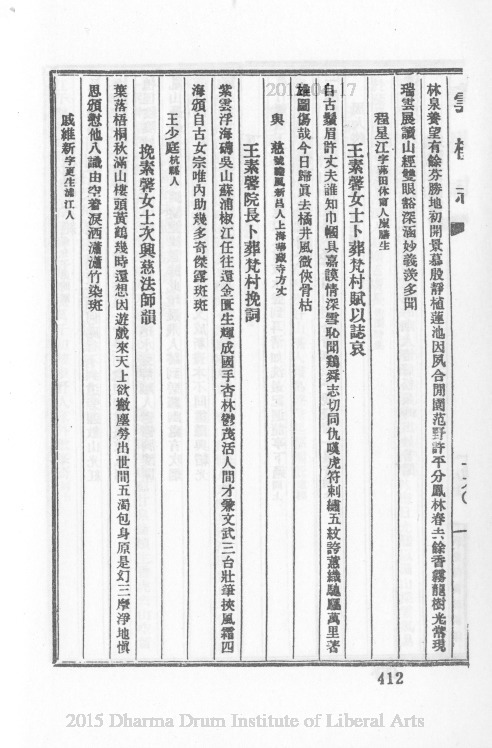 林泉養望有餘芬勝地初開景慕殷靜植蓮池因夙合閒園范野許平分鳳林春去餘香靄龍樹光常現
瑞雲展讀山經雙眼豁深涵妙義羨多聞
程星江字蕗田休甯人崑騰生
王素馨女士卜葬梵村賦以誌哀
自古鬚眉許丈夫誰知巾幗具嘉謨情深雪恥聞鷄舞志切同仇嘆虎符刺繡五紋誇蕙織馳驅萬里著
雄圖傷哉今日歸眞去橘井風微俠骨枯
與慈號曉風新昌人上海華藏寺方丈
王素馨院長卜葬梵村挽詞
紫雲浮海礴吳山蘇浦椒江任往還金匱生輝成國手杏林鬱茂活人間才兼文武三台壯筆挾風霜四
海頒自古女宗唯內助幾多奇傑露斑斑
王少庭杭縣人
挽素馨女士次興慈法師韻
葉落梧桐秋滿山樓頭黃鶴幾時還想因遊戲來天上欲撇塵勞出世間五濁包身原是幻三摩淨地愼
思頒慰他八識由空着淚洒瀟瀟竹染斑
戚維新字更生浦江人
412
2015 Dharma Drum Institute of Liberal Arts